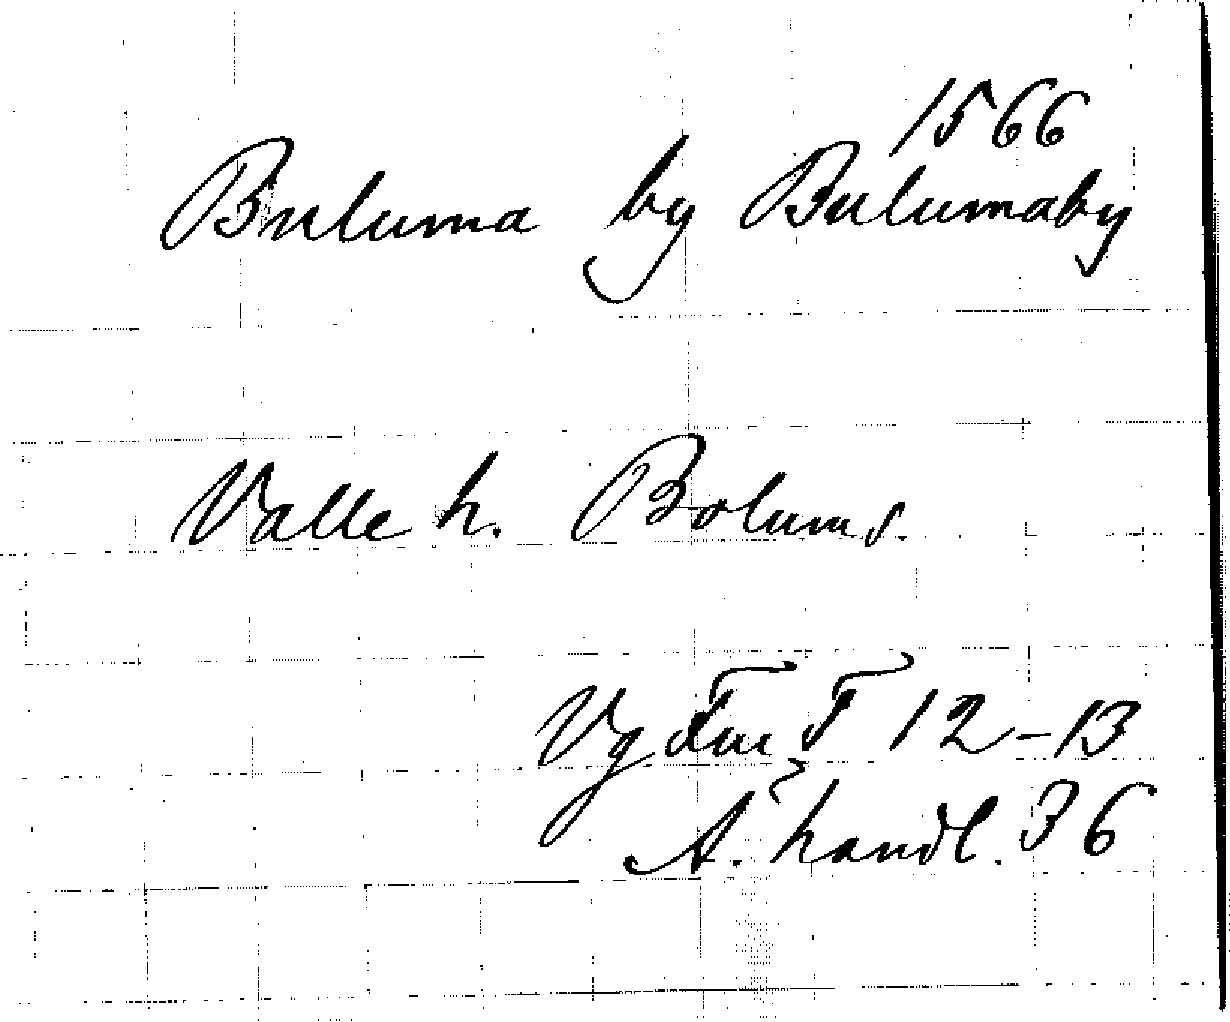 1566
Buluma by Bulumaby
Valle h. Bolums.
Vg Fmr F 12-13
A. handl. 36